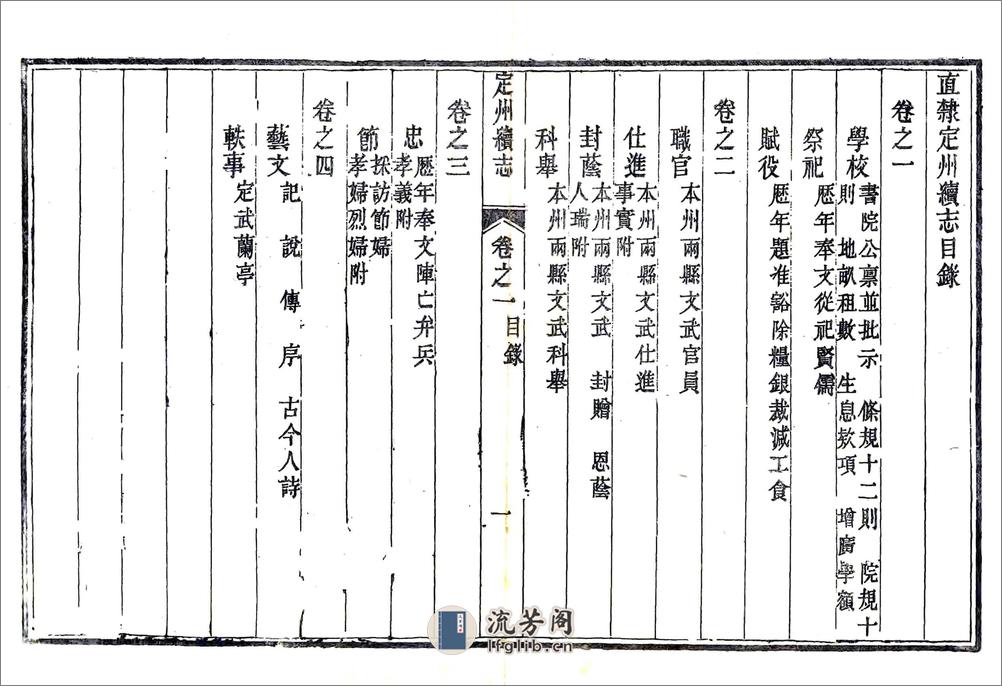 直隸定州續志目錄
卷之一
學校 書院公稟並批示 條規十二則 院規十
則 地畝租數 生息款項 增廣學額
祭祀 歷年奉文從祀賢儒
賦役 歷年題准豁除糧銀裁減工食
卷之二
職官 本州兩縣文武官員
仕進 本州兩縣文武仕進
事實附
封蔭 本州兩縣文武 封贈 恩蔭
人瑞附
科舉 本州兩縣文武科舉
定州續志 卷之一 目錄 一
卷之三
忠 歷年奉文陣亡弁兵
孝義附
節 採訪節婦
孝婦烈婦附
卷之四
藝文 記 說 傳 序 古今人詩
軼事 定武蘭亭
流芳阁
lfglib.cn